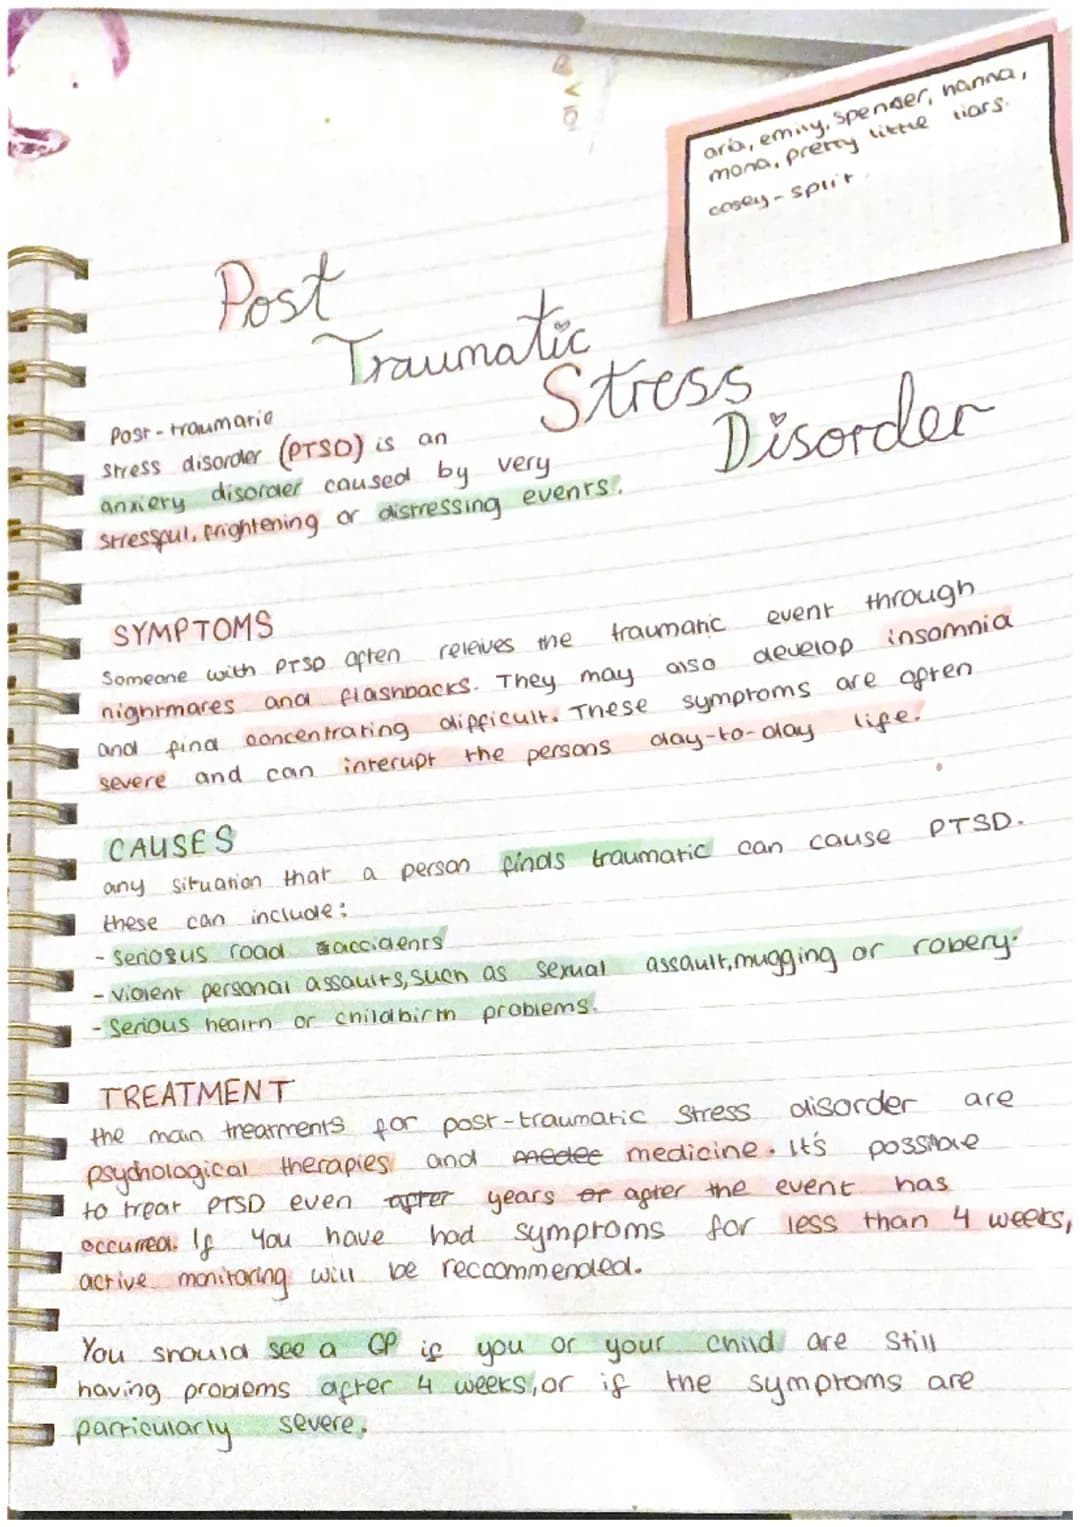 aria, emily, spencer, hanna,
mona, pretty little liars.
casey - split.
Post
Traumatic
Stress
Disorder
Post-traumatic
stress disorder (PTSD) is an
anxiety disorder caused by very
stressful, frightening or distressing events.
SYMPTOMS
Someone with PTSD often releives the traumatic event through
nightmares and flashbacks. They may also develop insomnia
and find concentrating difficult. These symptoms are often
severe and can interupt the persons day-to-day life.
CAUSES
any situation that a person finds traumatic can cause PTSD.
these can include:
- serious road accidents
- violent personal assaults, such as sexual assault, mugging or robery.
- Serious health or childbirth problems.
TREATMENT
the main treatments for post-traumatic stress disorder are
psychological therapies and medicine. It's possible
to treat PTSD even after years or after the event has
occurred. If you have had symptoms for less than 4 weeks,
active monitoring will be reccommended.
You should see a GP if you or your child are still
having problems after 4 weeks, or if the symptoms are
particularly severe.